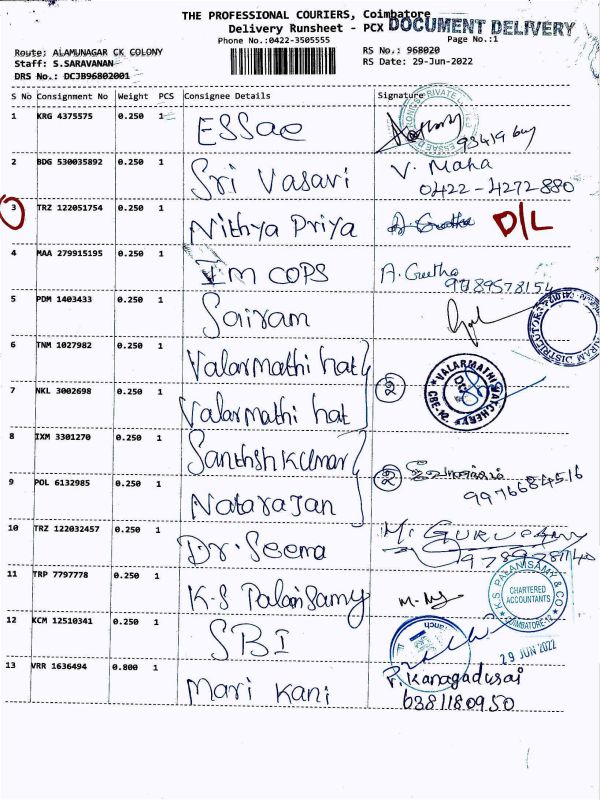 THE PROFESSIONAL COURIERS, Coimbatore
Delivery Runsheet - PCX DOCUMENT DELIVERY
Phone No.:0422-3505555 Page No.:1
Route: ALAMUNAGAR CK COLONY RS No.: 968020
Staff: S.SARAVANAN RS Date: 29-Jun-2022
DRS No.: DCJB96802001
S No Consignment No Weight PCS Consignee Details Signature
1 KRG 4375575 0.250 1 ESSae 93419
2 BDG 530035892 0.250 1 Sri Vasavi V. Maha
0422-4272880
3 TRZ 122051754 0.250 1 Nithya Priya D/L
4 MAA 279915195 0.250 1 IM COPS A. Geetha
9789578154
5 PDM 1403433 0.250 1 Sairam
6 TNM 1027982 0.250 1 Valarmathi hat
7 NKL 3002698 0.250 1 Valarmathi hat 2
VALARMATHI HATCHERY CBE-12
8 IXM 3301270 0.250 1 Santhsh Kumar
9 POL 6132985 0.250 1 Natarajan 2
9976684516
10 TRZ 122032457 0.250 1 Dr. Seema M. GURUSAMY
11 TRP 7797778 0.250 1 K.S Palanisamy
K.S. PALANISAMY & CO CHARTERED ACCOUNTANTS COIMBATORE-12
12 KCM 12510341 0.250 1 SBI
29 JUN 2022
13 VRR 1636494 0.800 1 Mari Kani P. Kanagadurai
6381180950